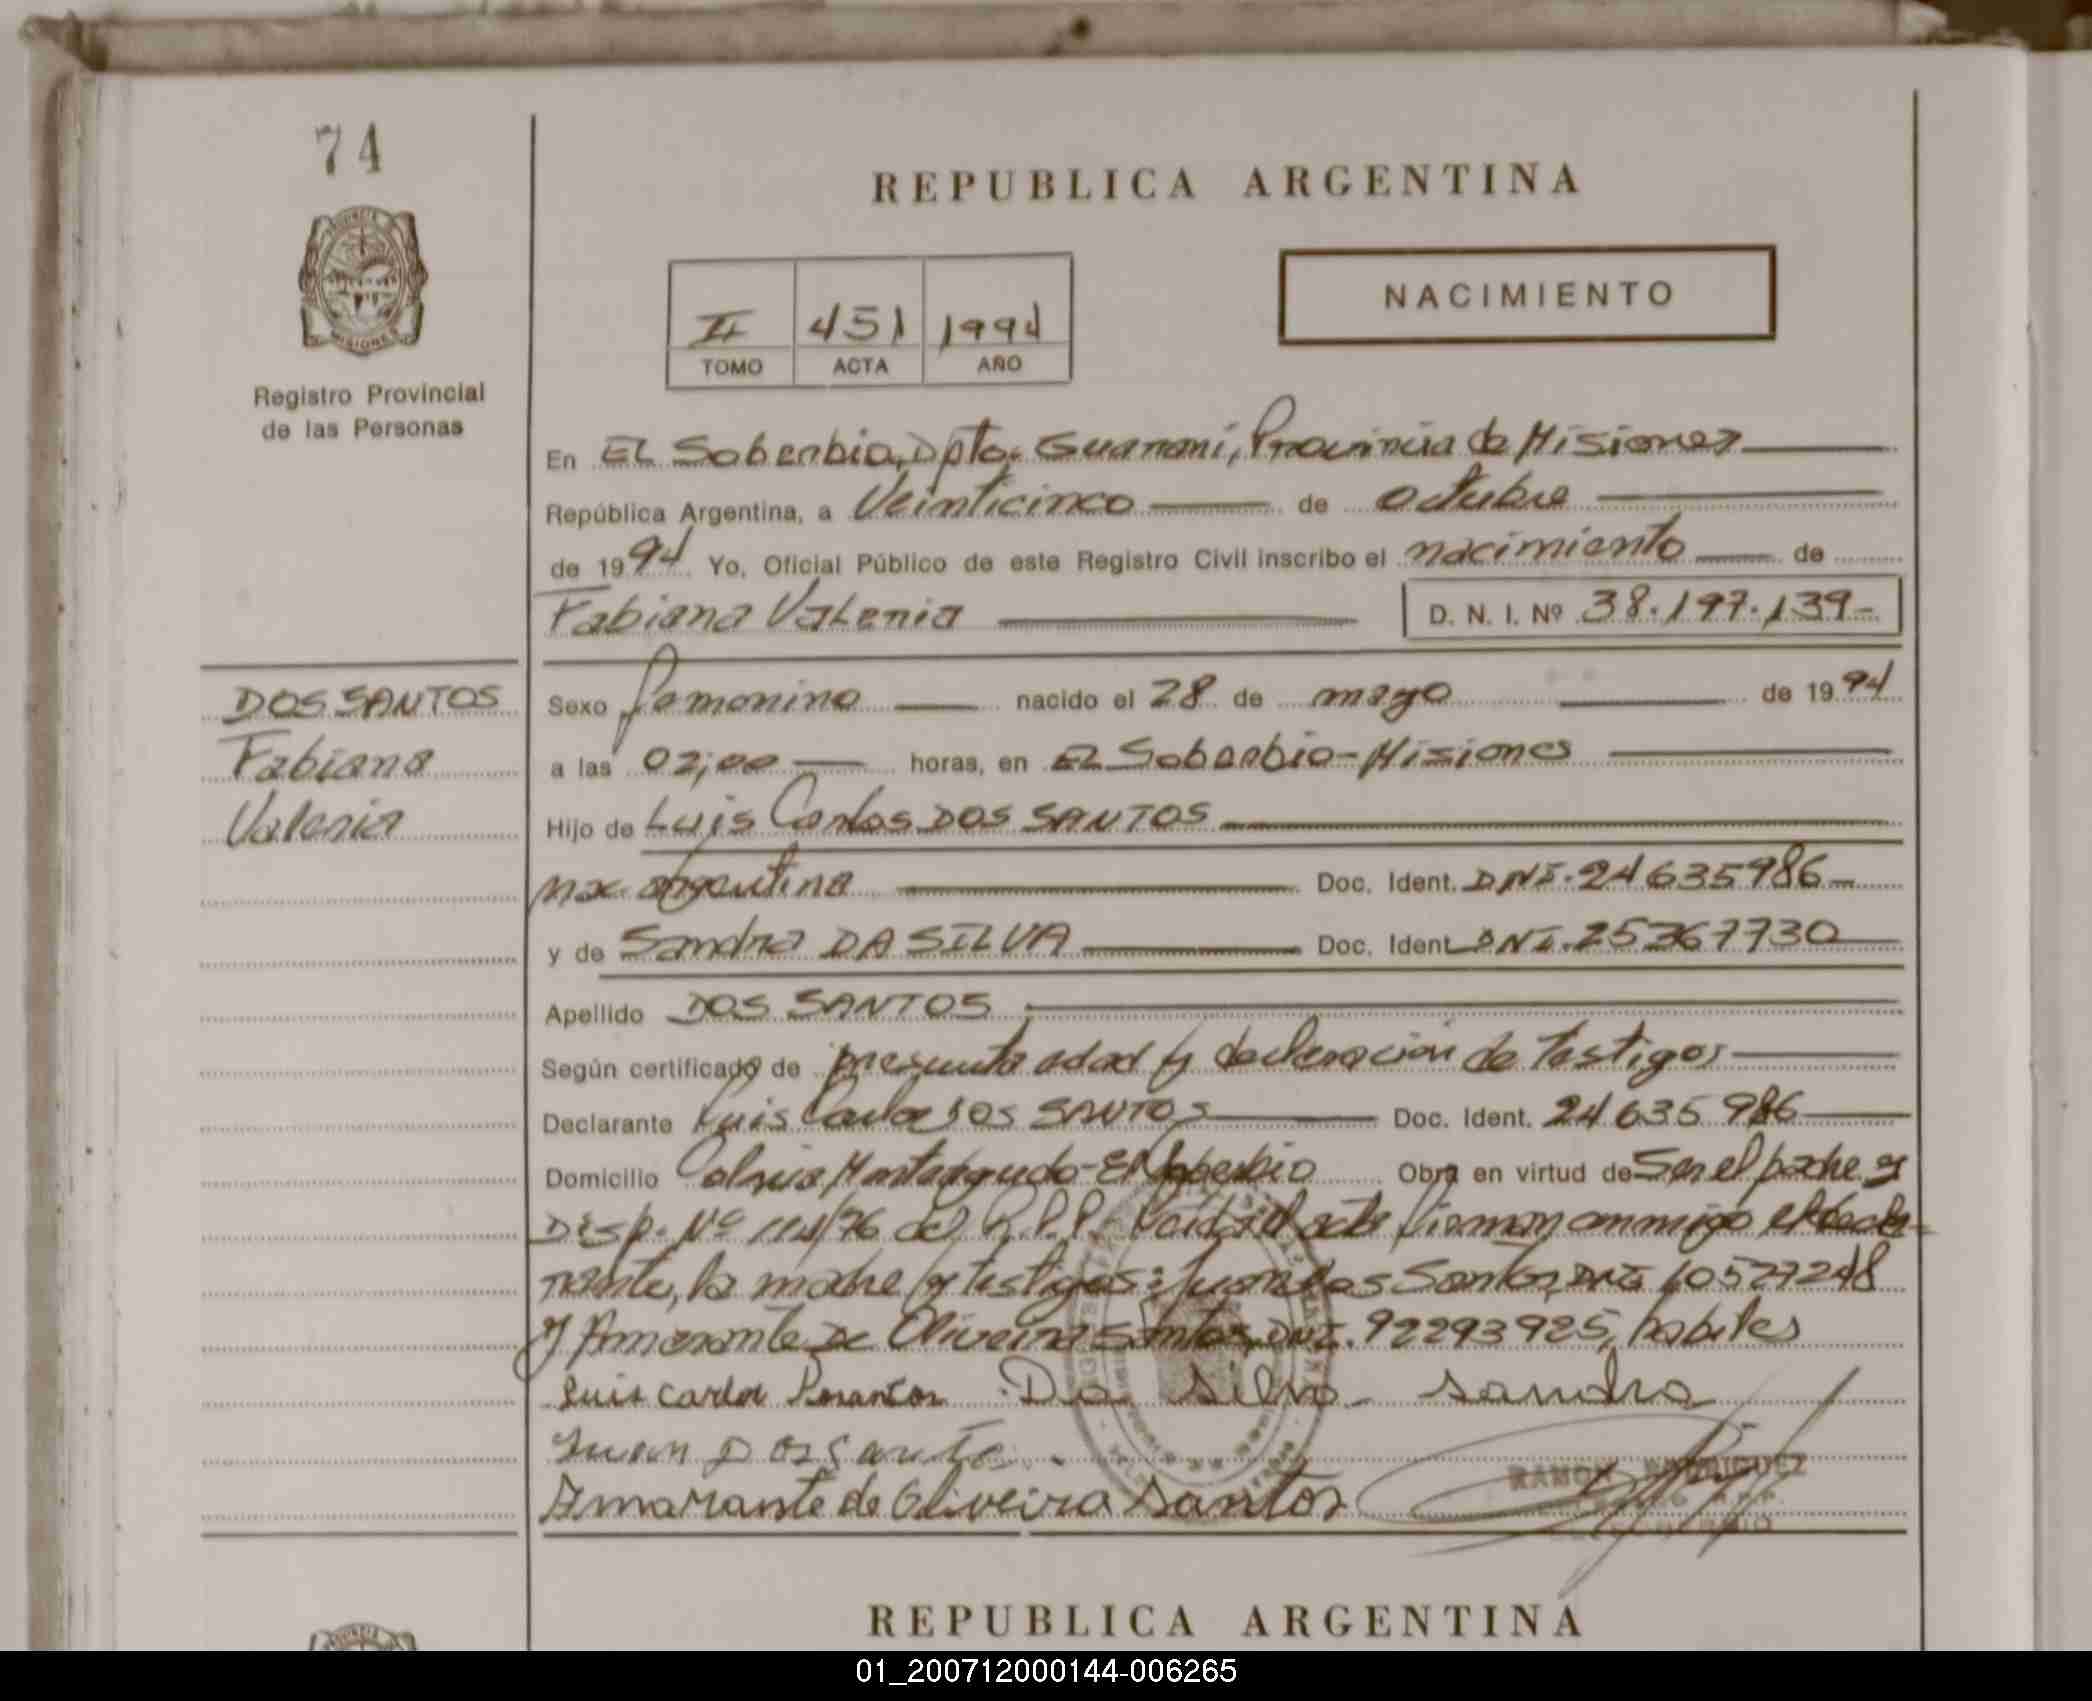 74
REPUBLICA ARGENTINA
II 451 1994
TOMO ACTA AÑO
NACIMIENTO
Registro Provincial
de las Personas
En EL Soberbio, Dpto. Guarani, Provincia de Misiones
República Argentina, a Veinticinco de octubre
de 1994 Yo, Oficial Público de este Registro Civil inscribo el nacimiento de
Fabiana Valeria D. N. I. Nº 38.197.139-
DOS SANTOS
Fabiana
Valeria
Sexo femenino nacido el 28 de mayo de 1994
a las 02,00 horas, en EL Soberbio-Misiones
Hijo de Luis Carlos DOS SANTOS
nac. argentina Doc. Ident. DNI. 24635986
y de Sandra DA SILVA Doc. Ident DNI. 25367730
Apellido DOS SANTOS
Según certificado de presunta edad y declaración de Testigos
Declarante Luis Carlos DOS SANTOS Doc. Ident. 24635986
Domicilio Colonia Monteagudo-El Soberbio Obra en virtud de Ser el padre y
Disp. Nº 114/76 del R.P.P. Leida el acta firman conmigo el decla-
rante, la madre y testigos: Juan dos Santos, DNI 10527248
y Amarante De Oliveira Santos, DNI. 92293925, habiles
Luis Carlos Dosantos Da Silva Sandra
Juan Dos Santos
Amarante de Oliveira Santos
RAMON RODRIGUEZ
REPUBLICA ARGENTINA
01_200712000144-006265